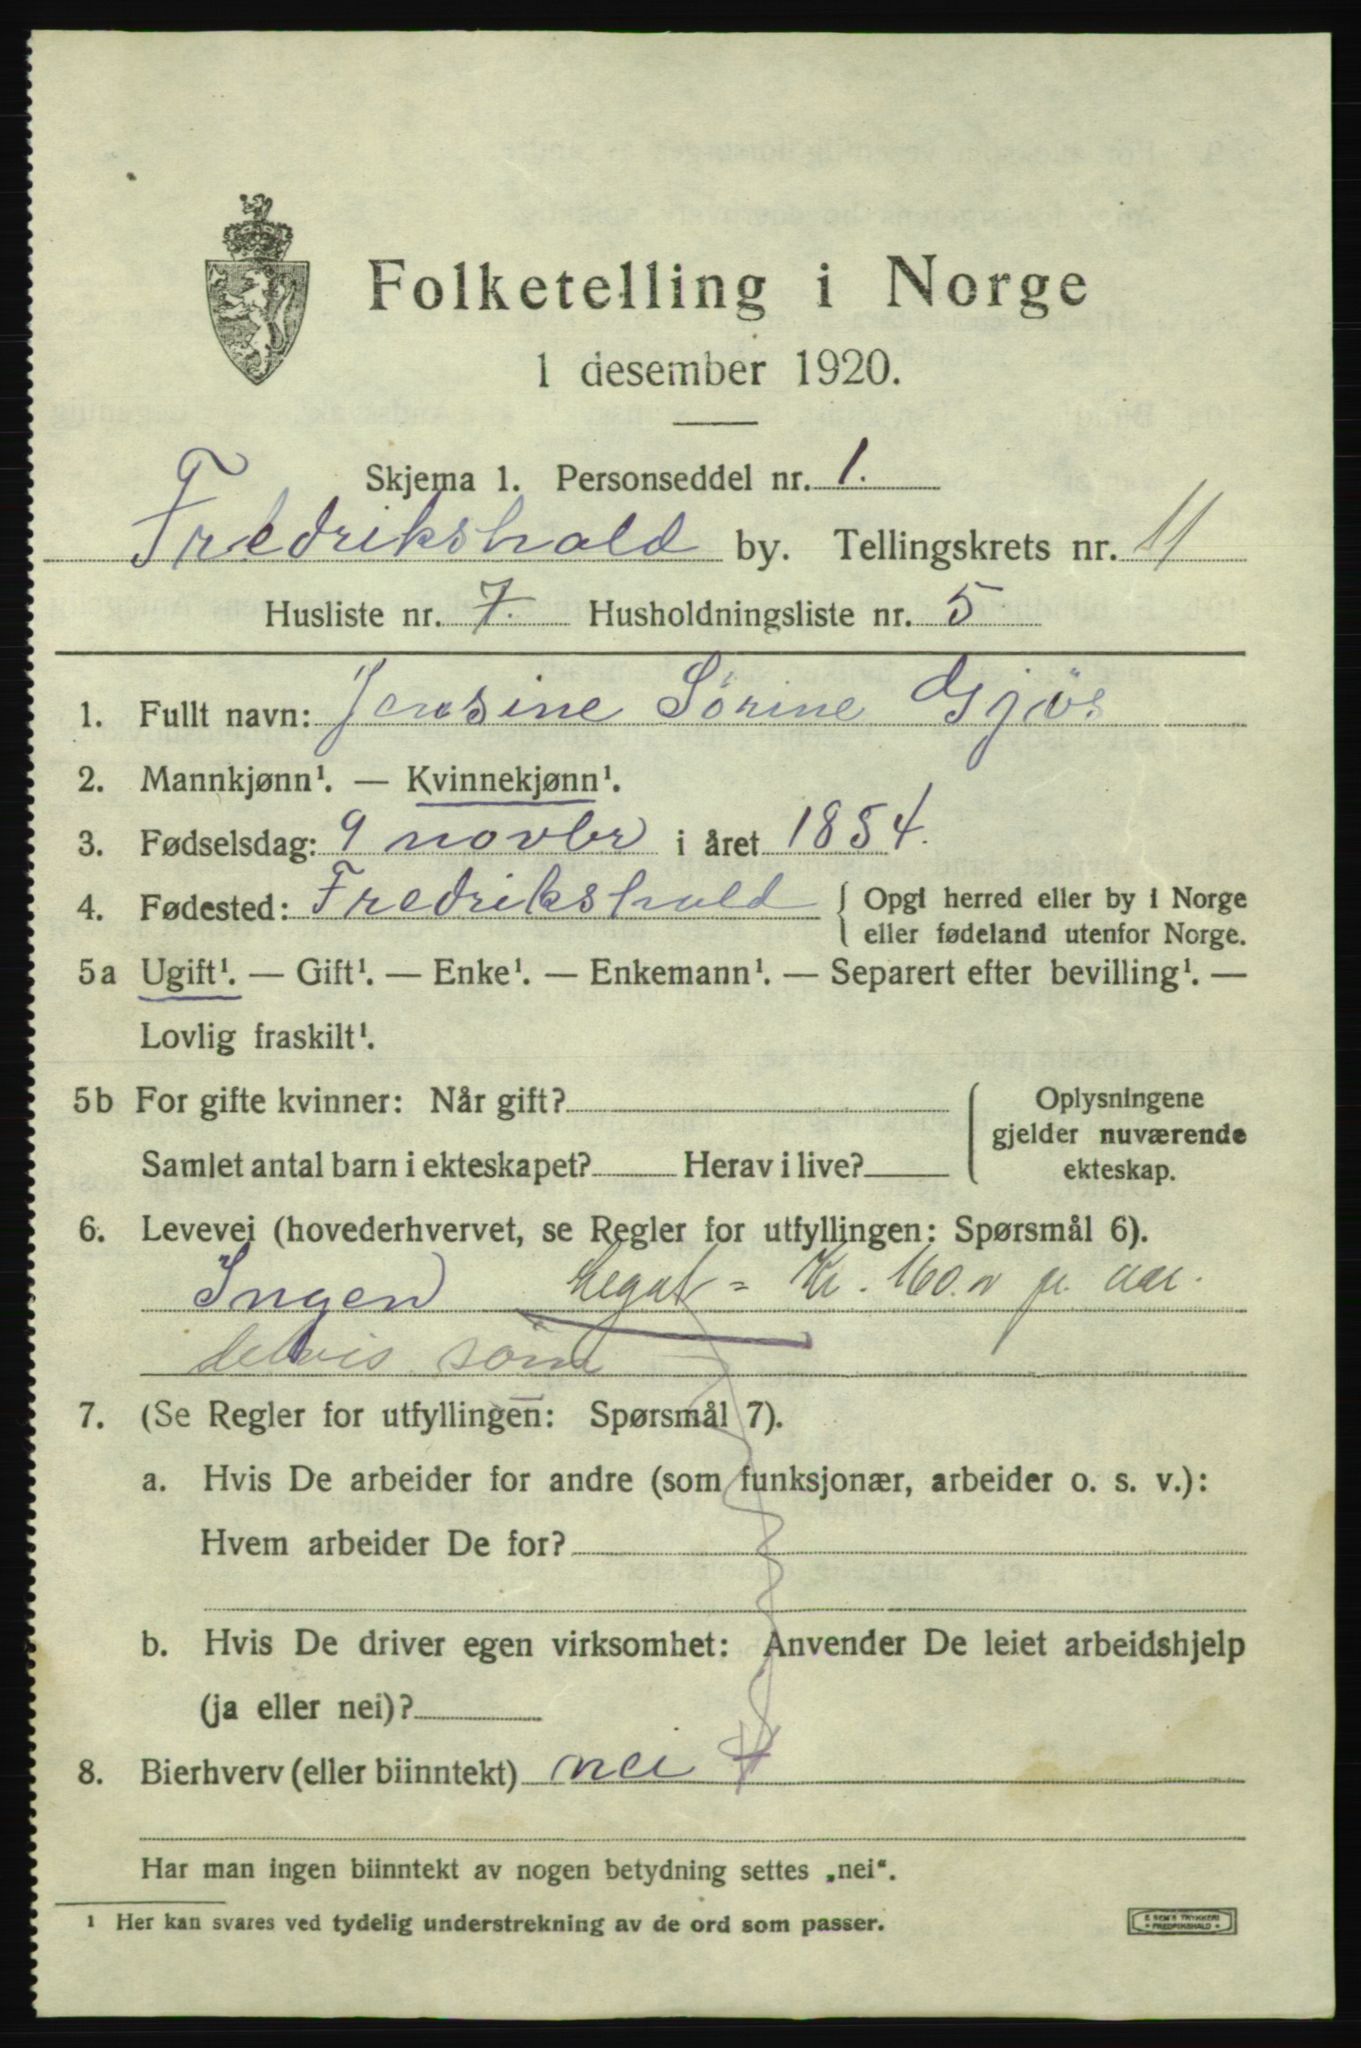 Folketelling i Norge
1 desember 1920.
Skjema 1. Personseddel nr. 1.
Fredrikshald by. Tellingskrets nr. 11
Husliste nr. 7. Husholdningsliste nr. 5
1. Fullt navn: Jensine Sörine Gjös
2. Mannkjønn¹. — Kvinnekjønn¹.
3. Fødselsdag: 9 novbr i året 1854.
4. Fødested: Fredrikshald { Opgi herred eller by i Norge
eller fødeland utenfor Norge.
5a Ugift¹. — Gift¹. — Enke¹. — Enkemann¹. — Separert efter bevilling¹. —
Lovlig fraskilt¹.
5b For gifte kvinner: Når gift? { Oplysningene
gjelder nuværende
Samlet antal barn i ekteskapet? Herav i live? ekteskap.
6. Levevei (hovederhvervet, se Regler for utfyllingen: Spørsmål 6).
Ingen Legat = Kr. 160.
delvis
7. (Se Regler for utfyllingen: Spørsmål 7).
a. Hvis De arbeider for andre (som funksjonær, arbeider o. s. v.):
Hvem arbeider De for?
b. Hvis De driver egen virksomhet: Anvender De leiet arbeidshjelp
(ja eller nei)?
8. Bierhverv (eller biinntekt) nei
Har man ingen biinntekt av nogen betydning settes „nei“.
¹ Her kan svares ved tydelig understrekning av de ord som passer.
E SEM'S TRYKKERI
FREDRIKSHALD